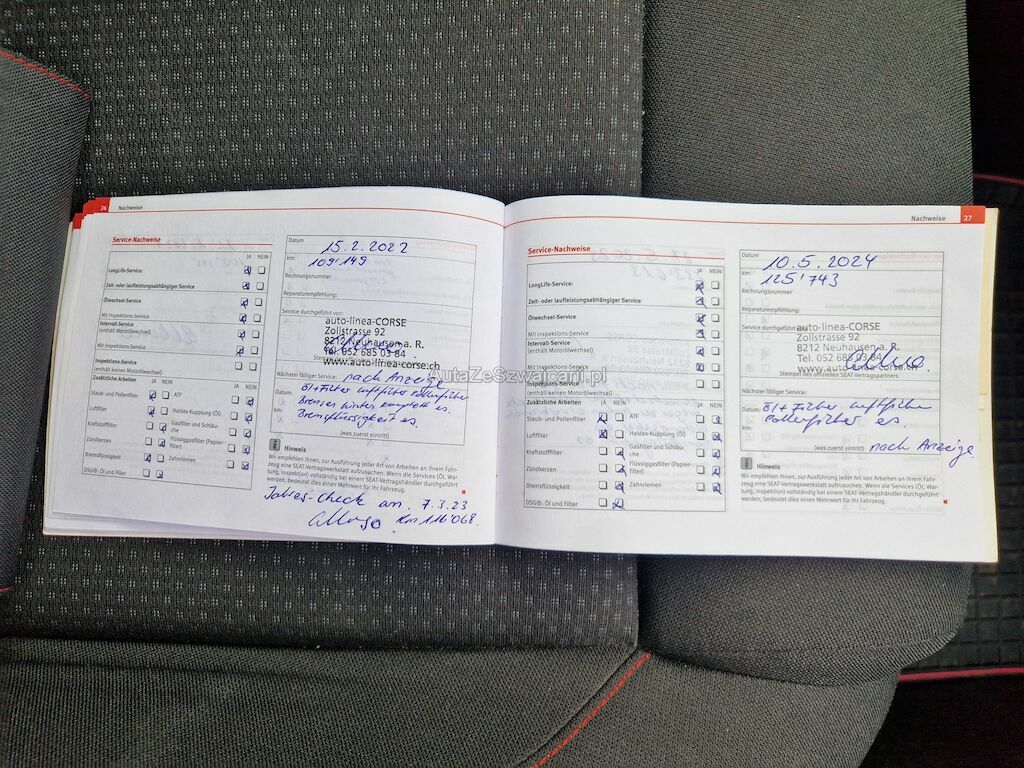 26 Nachweise
Service-Nachweise
JA NEIN
LongLife-Service:
Zeit- oder laufleistungsabhängiger Service
Ölwechsel-Service:
Mit Inspektions-Service
Intervall-Service
(enthält Motorölwechsel)
Mit Inspektions-Service
Inspektions-Service
(enthält keinen Motorölwechsel)
Zusätzliche Arbeiten JA NEIN JA NEIN
Staub- und Pollenfilter ATF
Luftfilter Haldex-Kupplung (Öl)
Kraftstofffilter Gasfilter und Schläuche
Zündkerzen Flüssiggasfilter (Papierfilter)
Bremsflüssigkeit Zahnriemen
DSG®: Öl und Filter
Datum 15.2.2022
km: 109'149
Rechnungsnummer
Reparaturempfehlung:
Service durchgeführt von:
auto-linea-CORSE
Zollstrasse 92
8212 Neuhausen a. R.
Tel. 052 685 03 84
www.auto-linea-corse.ch
Nächster fälliger Service: nach Anzeige
Datum: Öl+Filter Luftfilter Pollenfilter
Bremsen hinten komplett es.
km: Bremsflüssigkeit es.
(was zuerst eintritt)
Hinweis
Wir empfehlen Ihnen, zur Ausführung jeder Art von Arbeiten an Ihrem Fahr-
zeug eine SEAT-Vertragswerkstatt aufzusuchen. Wenn die Services (Öl, War-
tung, Inspektion) vollständig bei einem SEAT-Vertragshändler durchgeführt
werden, bedeutet dies einen Mehrwert für Ihr Fahrzeug.
Jahres-Check am 7.3.23
Km 116'068.
Nachweise 27
Service-Nachweise
JA NEIN
LongLife-Service:
Zeit- oder laufleistungsabhängiger Service
Ölwechsel-Service:
Mit Inspektions-Service
Intervall-Service
(enthält Motorölwechsel)
Mit Inspektions-Service
Inspektions-Service
(enthält keinen Motorölwechsel)
Zusätzliche Arbeiten JA NEIN JA NEIN
Staub- und Pollenfilter ATF
Luftfilter Haldex-Kupplung (Öl)
Kraftstofffilter Gasfilter und Schläuche
Zündkerzen Flüssiggasfilter (Papierfilter)
Bremsflüssigkeit Zahnriemen
DSG®: Öl und Filter
Datum 10.5.2024
km: 125'743
Rechnungsnummer
Reparaturempfehlung:
Service durchgeführt von:
auto-linea-CORSE
Zollstrasse 92
8212 Neuhausen a. R.
Tel. 052 685 03 84
www.auto-linea-corse.ch
Stempel des offiziellen SEAT-Vertragspartners
Nächster fälliger Service:
Datum: Öl+Filter Luftfilter
km: Pollenfilter es.
(was zuerst eintritt) nach Anzeige
Hinweis
Wir empfehlen Ihnen, zur Ausführung jeder Art von Arbeiten an Ihrem Fahr-
zeug eine SEAT-Vertragswerkstatt aufzusuchen. Wenn die Services (Öl, War-
tung, Inspektion) vollständig bei einem SEAT-Vertragshändler durchgeführt
werden, bedeutet dies einen Mehrwert für Ihr Fahrzeug.
AutaZeSzwajcarii.pl